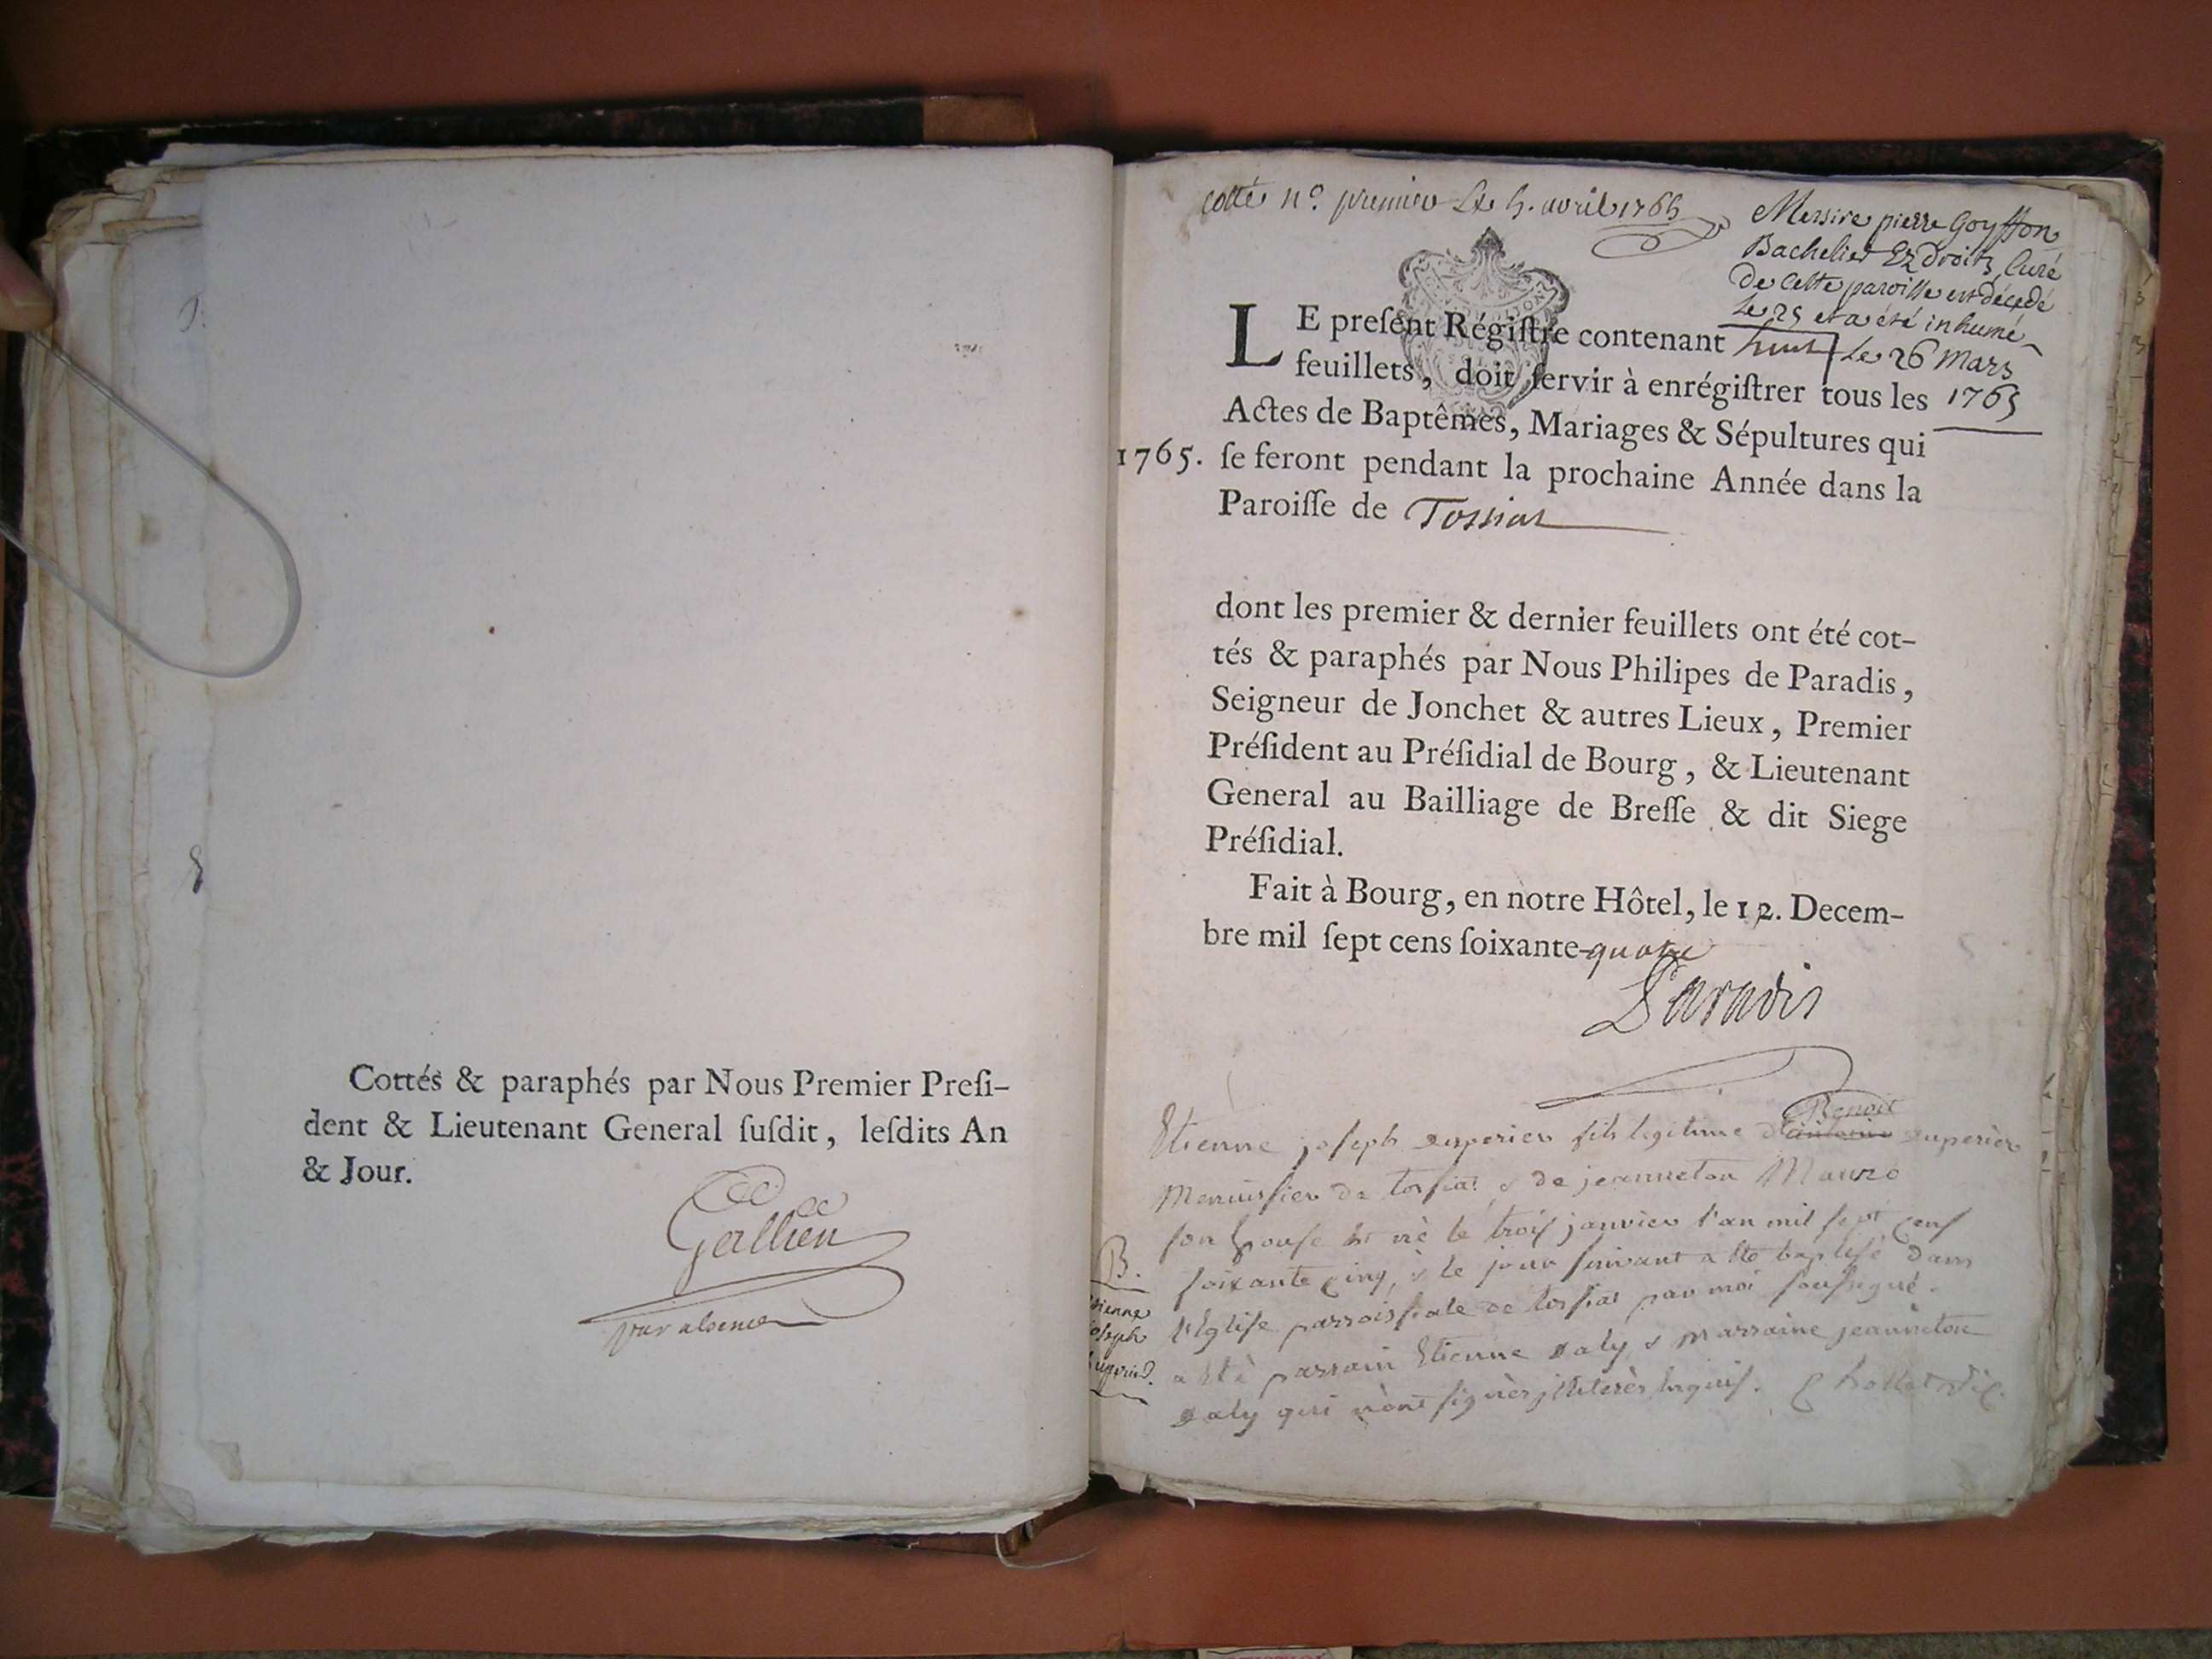 Cottés & paraphés par Nous Premier Preſi-
dent & Lieutenant General ſuſdit, leſdits An
& Jour.
Gallien
par absence
cotté n.º premier Le 5. avril 1765
Messire pierre Goyffon
Bachelier Ez droits, Curé
De Cette paroisse est décédé
Le 25 et a été inhumé
Le 26 Mars
1765
LE preſent Régiſtre contenant huit
feuillets, doit ſervir à enrégiſtrer tous les
Actes de Baptêmes, Mariages & Sépultures qui
1765. ſe feront pendant la prochaine Année dans la
Paroiſſe de Tossiat
dont les premier & dernier feuillets ont été cot-
tés & paraphés par Nous Philipes de Paradis,
Seigneur de Jonchet & autres Lieux, Premier
Préſident au Préſidial de Bourg, & Lieutenant
General au Bailliage de Breſſe & dit Siege
Préſidial.
Fait à Bourg, en notre Hôtel, le 12. Decem-
bre mil ſept cens ſoixante-quatre
Paradis
Benoit
Etienne joseph fils legitime
Menuissier de tossiat & de jeanneton
son Epouse est né le trois janvier l'an mil sept cens
soixante cinq, & le jour suivant a été baptisé dans
l'Eglise parroissiale de tossiat par moi soussigné.
a été parrain Etienne & marraine jeanneton
qui n'ont signés illiterés requis.
B.
Etienne
joseph